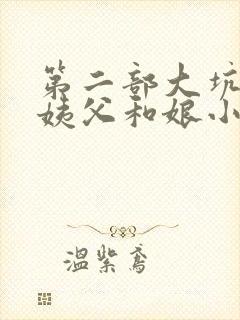 第二部大坑
姨父和娘小
温紫鸢